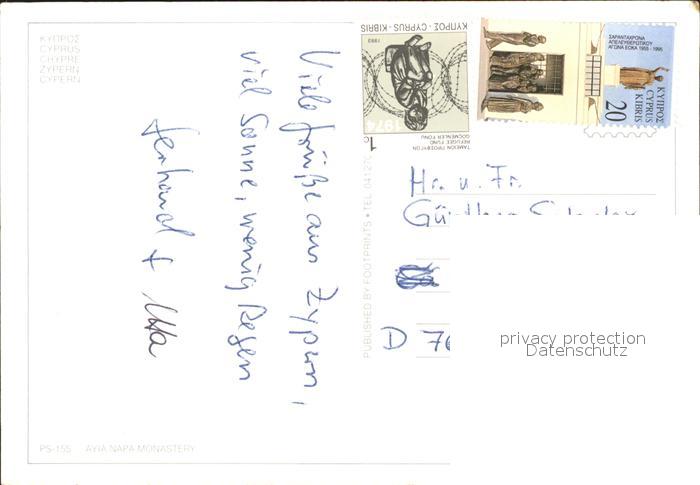 ΚΥΠΡΟΣ
CYPRUS
CHYPRE
ZYPERN
CYPERN
Viele Grüße aus Zypern,
viel Sonne, wenig Regen
Utta
PS-155 AYIA NAPA MONASTERY
PUBLISHED BY FOOTPRINTS • TEL. 04127
ΚΥΠΡΟΣ - CYPRUS - KIBRIS
1993
1974
1c
ΤΑΜΕΙΟΝ ΠΡΟΣΦΥΓΩΝ
REFUGEE FUND
GÖÇMENLER FONU
ΣΑΡΑΝΤΑΧΡΟΝΑ
ΑΠΕΛΕΥΘΕΡΩΤΙΚΟΥ
ΑΓΩΝΑ ΕΟΚΑ 1955-1995
ΚΥΠΡΟΣ
CYPRUS
KIBRIS
20
Hr. u. Fr.
D 76
privacy protection
Datenschutz